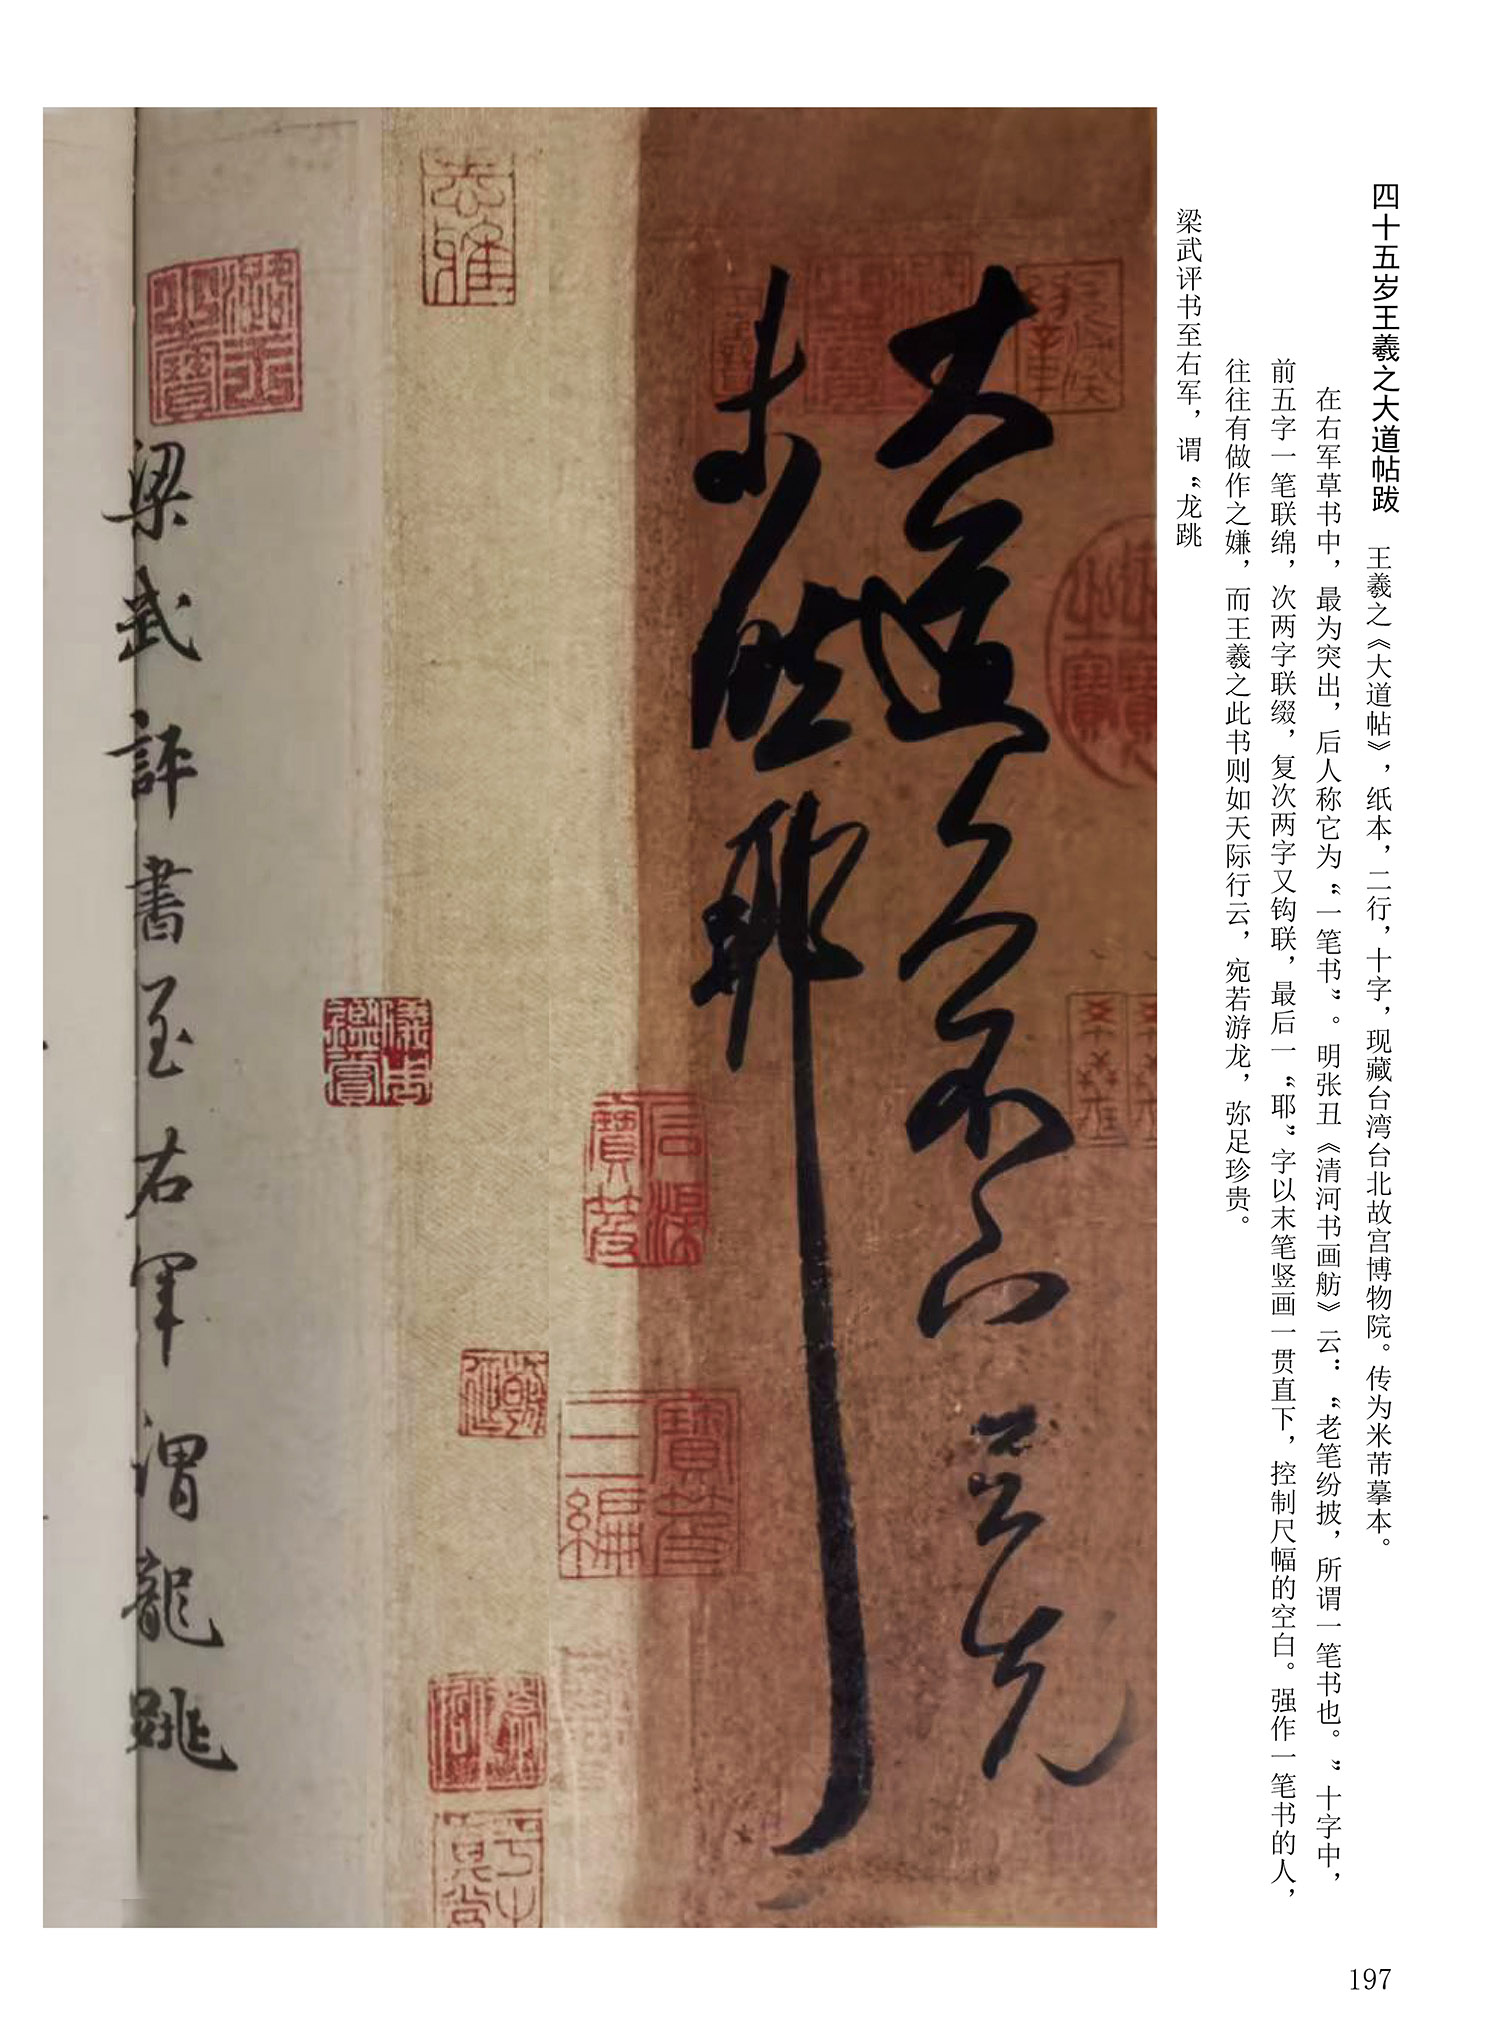 四十五岁王羲之大道帖跋 王羲之《大道帖》，纸本，二行，十字，现藏台湾台北故宫博物院。传为米芾摹本。
在右军草书中，最为突出，后人称它为“一笔书”。明张丑《清河书画舫》云：“老笔纷披，所谓一笔书也。”十字中，
前五字一笔联绵，次两字联缀，复次两字又钩联，最后一“耶”字以末笔竖画一贯直下，控制尺幅的空白。强作一笔书的人，
往往有做作之嫌，而王羲之此书则如天际行云，宛若游龙，弥足珍贵。
梁武评书至右军，谓“龙跳
大道久不下与先
未然耶
石渠寶笈
寶笈三編
儀周鑑賞
梁武評書至右軍謂龍跳
197